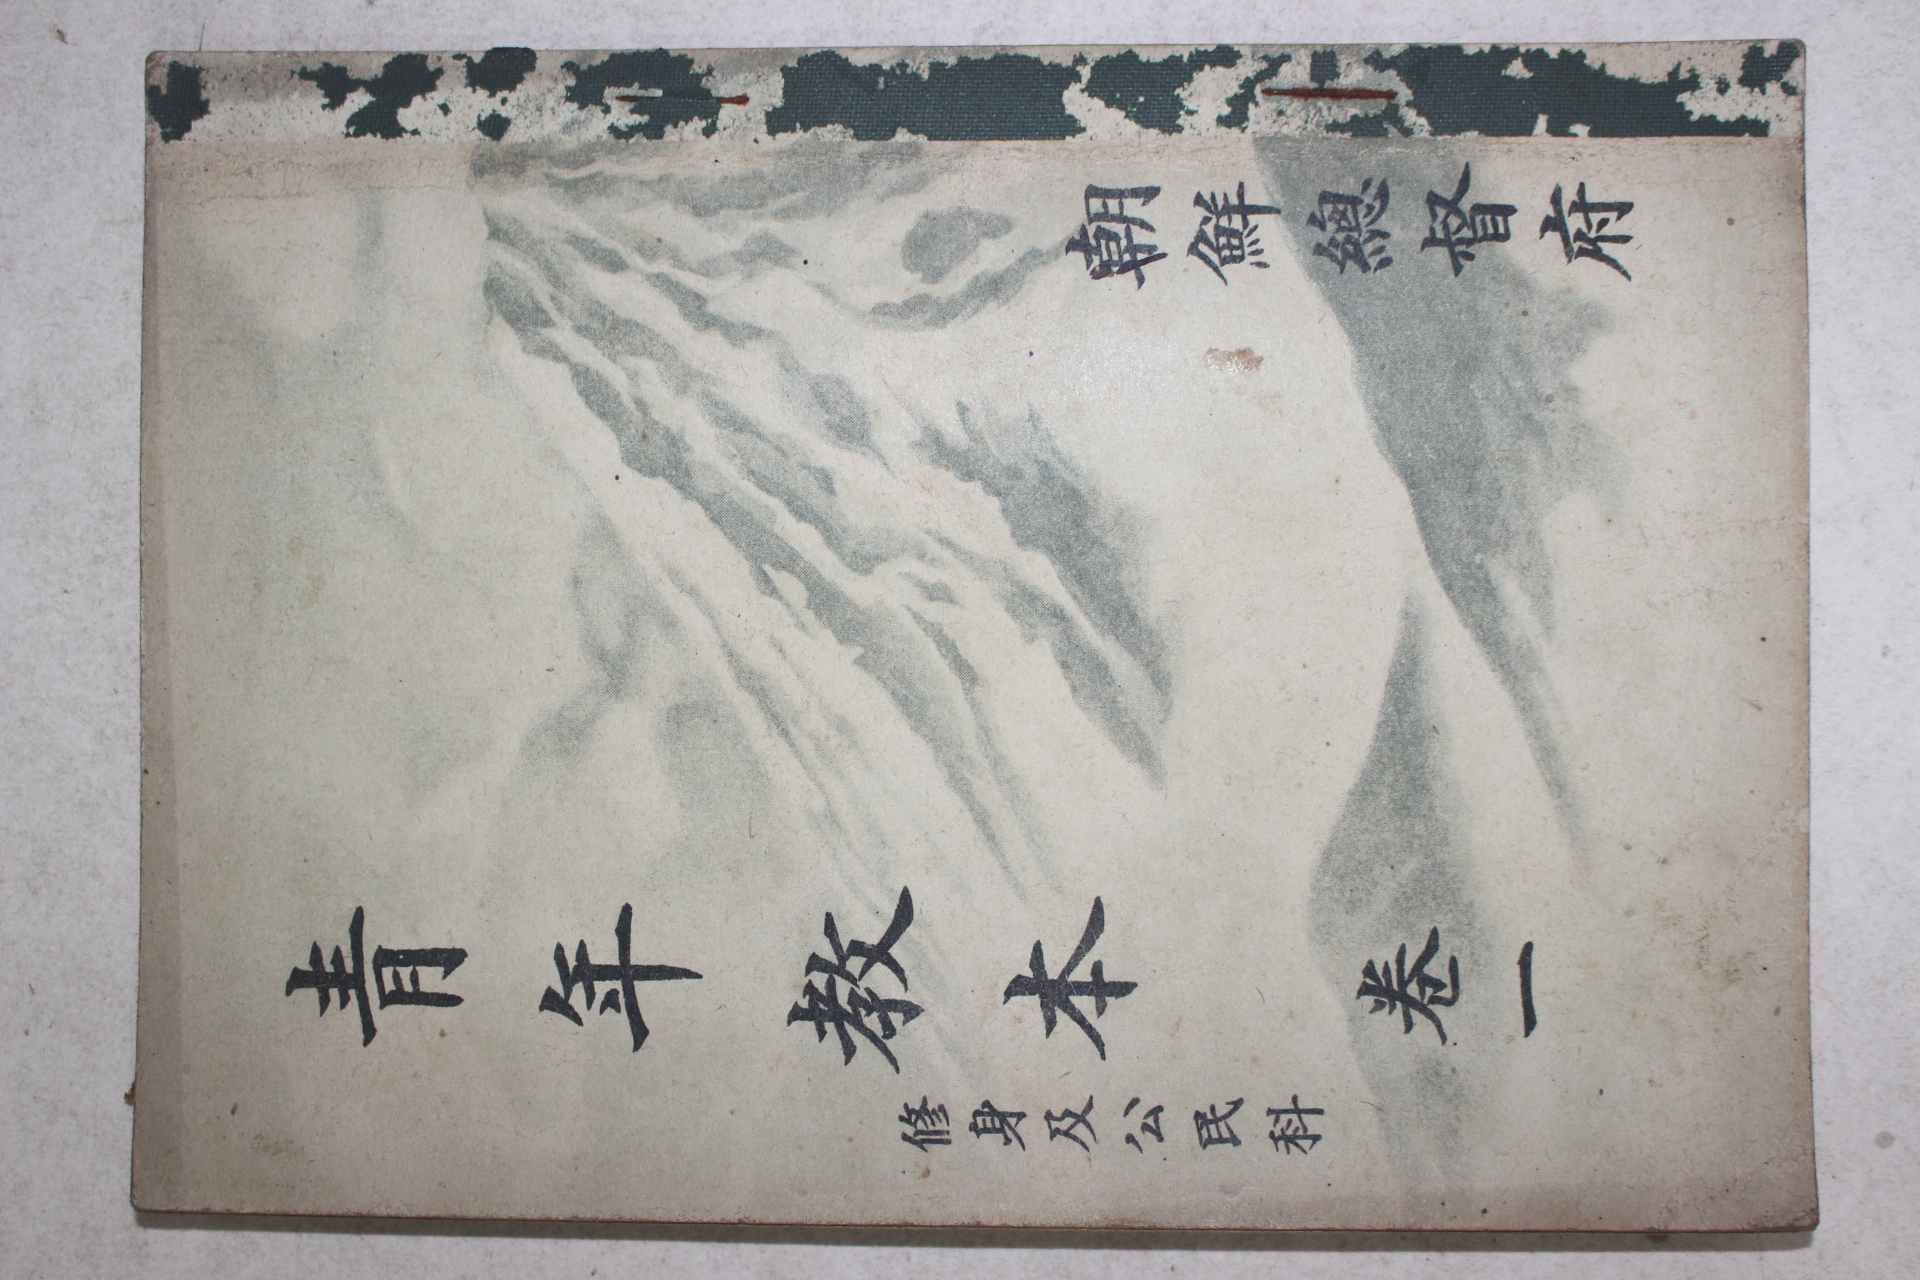 朝鮮總督府
青年教本 卷一
修身及公民科